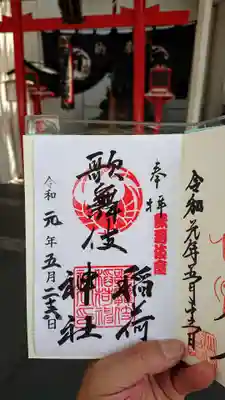 奉拝
歌舞伎
稲荷
神社
令和元年五月二十六日
令和元年五月二十六日